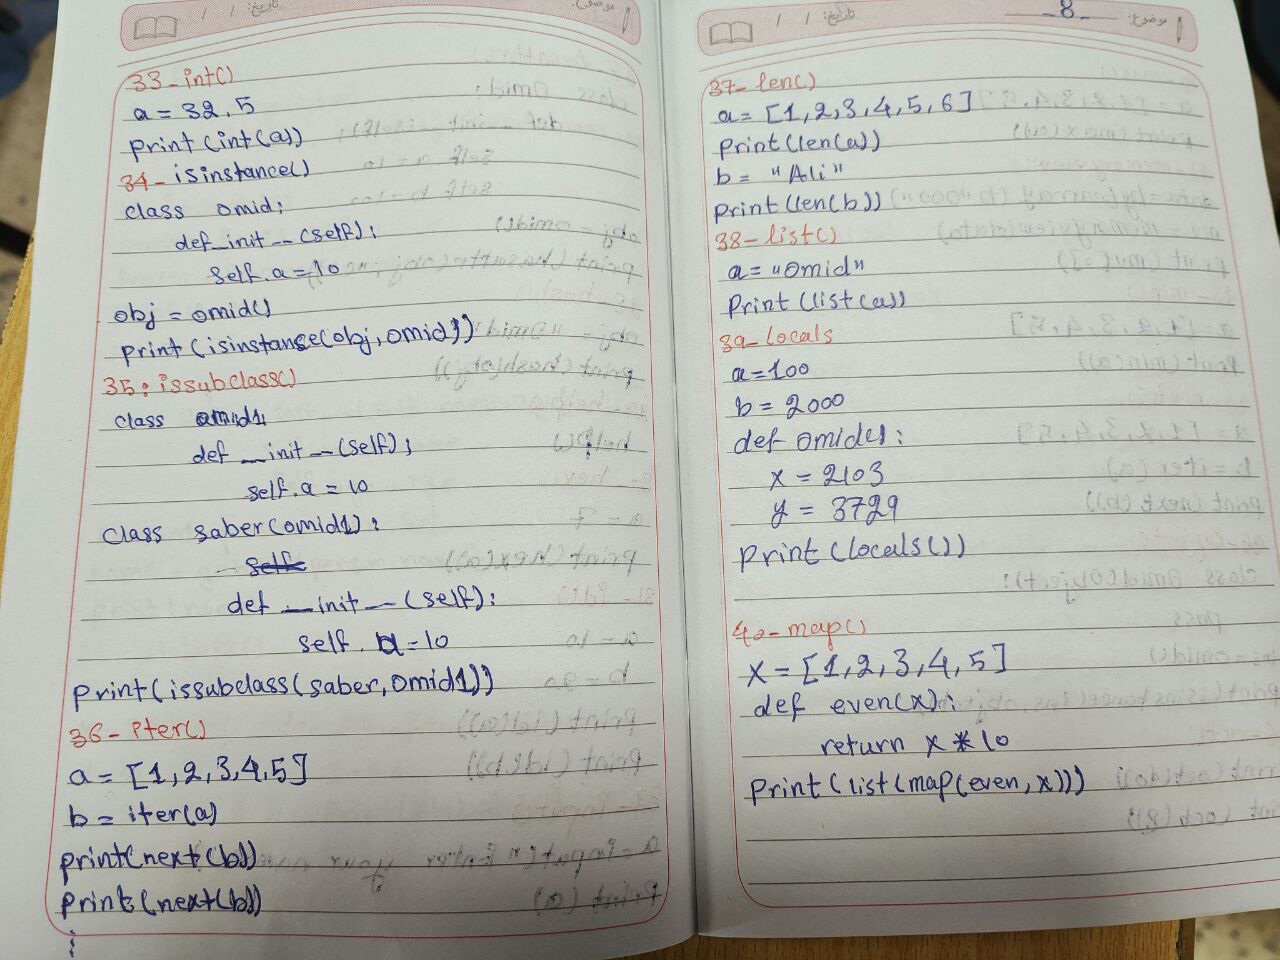 موضوع:
تاریخ: / /
33-int()
a = 32.5
print(int(a))
34-isinstance()
class omid:
def_init__(self):
self.a=10
obj = omid()
print(isinstance(obj,omid))
35: issubclass()
class omid1:
def __init__(self):
self.a = 10
class saber(omid1):
self
def __init__(self):
self.a=10
print(issubclass(saber,omid1))
36-iter()
a = [1,2,3,4,5]
b = iter(a)
print(next(b))
print(next(b))
موضوع:
8
تاریخ: / /
37-len()
a= [1,2,3,4,5,6]
print(len(a))
b= "Ali"
print(len(b))
38-list()
a= "omid"
print(list(a))
39-locals
a=100
b=2000
def omid():
x = 2103
y = 3729
print(locals())
40-map()
x = [1,2,3,4,5]
def even(x):
return x*10
print(list(map(even,x)))